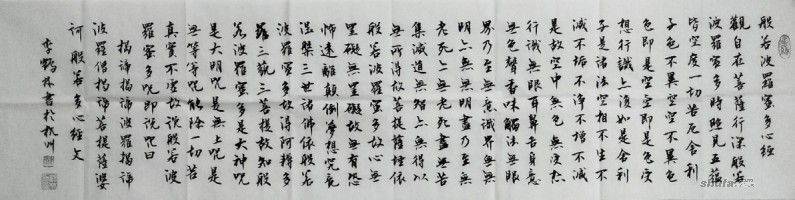 般若波羅蜜多心經
觀自在菩薩行深般若
波羅蜜多時照見五蘊
皆空度一切苦厄舍利
子色不異空空不異色
色即是空空即是色受
想行識亦復如是舍利
子是諸法空相不生不
滅不垢不淨不增不減
是故空中無色無受想
行識無眼耳鼻舌身意
無色聲香味觸法無眼
界乃至無意識界無無
明亦無無明盡乃至無
老死亦無老死盡無苦
集滅道無智亦無得以
無所得故菩提薩埵依
般若波羅蜜多故心無
罣礙無罣礙故無有恐
怖遠離顛倒夢想究竟
涅槃三世諸佛依般若
波羅蜜多故得阿耨多
羅三藐三菩提故知般
若波羅蜜多是大神咒
是大明咒是無上咒是
無等等咒能除一切苦
真實不虛故說般若波
羅蜜多咒即說咒曰
揭諦揭諦波羅揭諦
波羅僧揭諦菩提薩婆
訶 般若多心經文
李鶴林書於杭州